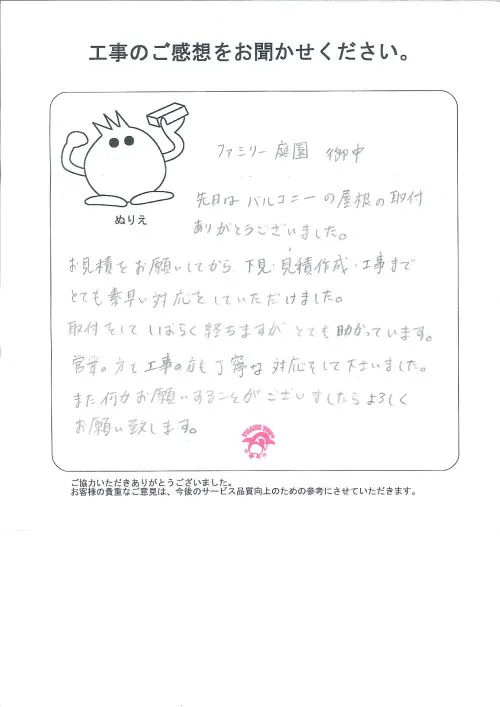 工事のご感想をお聞かせください。
ファミリー庭園 御中
ぬりえ
先日は バルコニーの屋根の取付
ありがとうございました。
お見積をお願いしてから、下見・見積作成・工事まで
とても素早い対応をしていただけました。
取付をして しばらく経ちますが とても助かっています。
営業の方も工事の方も丁寧な対応をして下さいました。
また何かお願いすることがございましたらよろしく
お願い致します。
THANK YOU
ご協力いただきありがとうございました。
お客様の貴重なご意見は、今後のサービス品質向上のための参考にさせていただきます。